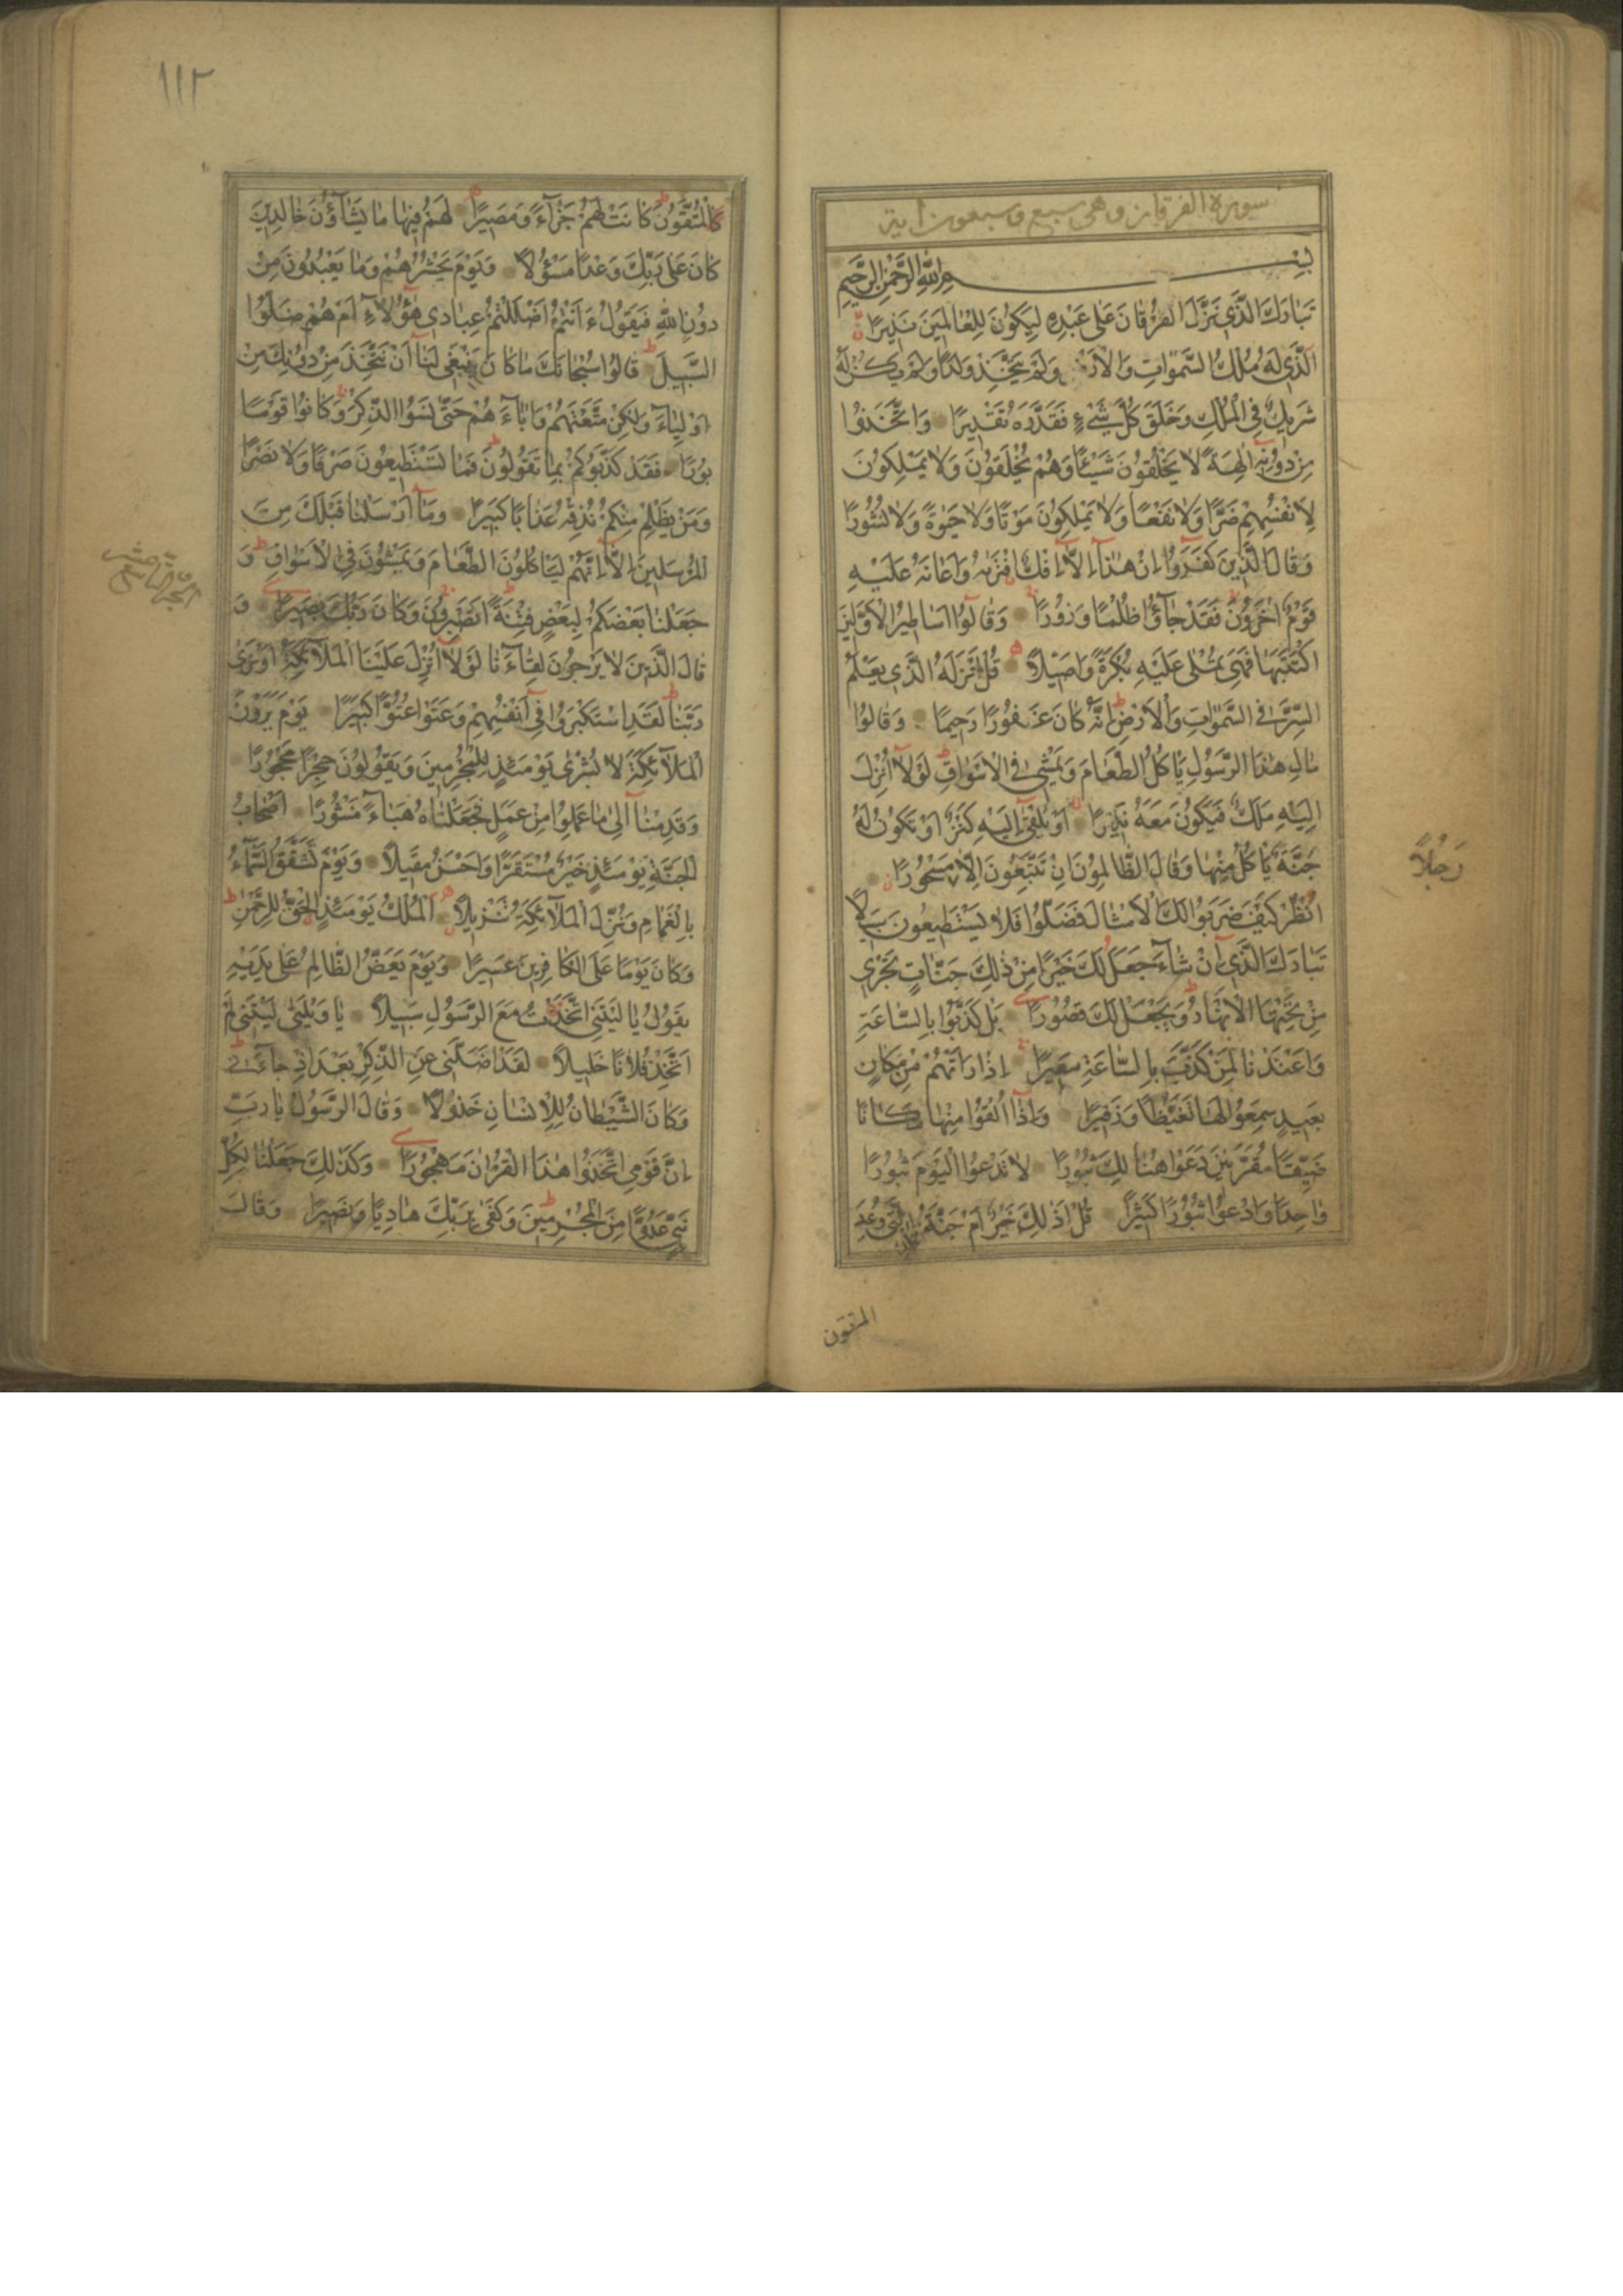 سورة الفرقان وهى سبع وسبعون اية
بِسْمِ اللّٰهِ الرَّحْمٰنِ الرَّحِيمِ
تَبَارَكَ الَّذِي نَزَّلَ الْفُرْقَانَ عَلٰى عَبْدِهِ لِيَكُونَ لِلْعَالَمِينَ نَذِيرًا
الَّذِي لَهُ مُلْكُ السَّمٰوَاتِ وَالْاَرْضِ وَلَمْ يَتَّخِذْ وَلَدًا وَلَمْ يَكُنْ لَهُ
شَرِيكٌ فِي الْمُلْكِ وَخَلَقَ كُلَّ شَيْءٍ فَقَدَّرَهُ تَقْدِيرًا وَاتَّخَذُوا
مِنْ دُونِهِ اٰلِهَةً لَا يَخْلُقُونَ شَيْئًا وَهُمْ يُخْلَقُونَ وَلَا يَمْلِكُونَ
لِاَنْفُسِهِمْ ضَرًّا وَلَا نَفْعًا وَلَا يَمْلِكُونَ مَوْتًا وَلَا حَيٰوةً وَلَا نُشُورًا
وَقَالَ الَّذِينَ كَفَرُوا اِنْ هٰذَا اِلَّا اِفْكٌ افْتَرٰيهُ وَاَعَانَهُ عَلَيْهِ
قَوْمٌ اٰخَرُونَ فَقَدْ جَاؤُا ظُلْمًا وَزُورًا وَقَالُوا اَسَاطِيرُ الْاَوَّلِينَ
اكْتَتَبَهَا فَهِيَ تُمْلٰى عَلَيْهِ بُكْرَةً وَاَصِيلًا قُلْ اَنْزَلَهُ الَّذِي يَعْلَمُ
السِّرَّ فِي السَّمٰوَاتِ وَالْاَرْضِ اِنَّهُ كَانَ غَفُورًا رَحِيمًا وَقَالُوا
مَالِ هٰذَا الرَّسُولِ يَاْكُلُ الطَّعَامَ وَيَمْشِي فِي الْاَسْوَاقِ لَوْلَا اُنْزِلَ
اِلَيْهِ مَلَكٌ فَيَكُونَ مَعَهُ نَذِيرًا اَوْ يُلْقٰى اِلَيْهِ كَنْزٌ اَوْ تَكُونُ لَهُ
جَنَّةٌ يَاْكُلُ مِنْهَا وَقَالَ الظَّالِمُونَ اِنْ تَتَّبِعُونَ اِلَّا مَسْحُورًا
رَجُلًا
انْظُرْ كَيْفَ ضَرَبُوا لَكَ الْاَمْثَالَ فَضَلُّوا فَلَا يَسْتَطِيعُونَ سَبِيلًا
تَبَارَكَ الَّذِي اِنْ شَاءَ جَعَلَ لَكَ خَيْرًا مِنْ ذٰلِكَ جَنَّاتٍ تَجْرِي
مِنْ تَحْتِهَا الْاَنْهَارُ وَيَجْعَلْ لَكَ قُصُورًا بَلْ كَذَّبُوا بِالسَّاعَةِ
وَاَعْتَدْنَا لِمَنْ كَذَّبَ بِالسَّاعَةِ سَعِيرًا اِذَا رَاَتْهُمْ مِنْ مَكَانٍ
بَعِيدٍ سَمِعُوا لَهَا تَغَيُّظًا وَزَفِيرًا وَاِذَا اُلْقُوا مِنْهَا مَكَانًا
ضَيِّقًا مُقَرَّنِينَ دَعَوْا هُنَالِكَ ثُبُورًا لَا تَدْعُوا الْيَوْمَ ثُبُورًا
وَاحِدًا وَادْعُوا ثُبُورًا كَثِيرًا قُلْ اَذٰلِكَ خَيْرٌ اَمْ جَنَّةُ الْخُلْدِ الَّتِي وُعِدَ
المتقون
١١٢
الْمُتَّقُونَ كَانَتْ لَهُمْ جَزَاءً وَمَصِيرًا لَهُمْ فِيهَا مَا يَشَاؤُنَ خَالِدِينَ
كَانَ عَلٰى رَبِّكَ وَعْدًا مَسْؤُلًا وَيَوْمَ يَحْشُرُهُمْ وَمَا يَعْبُدُونَ مِنْ
دُونِ اللّٰهِ فَيَقُولُ ءَاَنْتُمْ اَضْلَلْتُمْ عِبَادِي هٰؤُلَاءِ اَمْ هُمْ ضَلُّوا
السَّبِيلَ قَالُوا سُبْحَانَكَ مَا كَانَ يَنْبَغِي لَنَا اَنْ نَتَّخِذَ مِنْ دُونِكَ مِنْ
اَوْلِيَاءَ وَلٰكِنْ مَتَّعْتَهُمْ وَاٰبَاءَهُمْ حَتّٰى نَسُوا الذِّكْرَ وَكَانُوا قَوْمًا
بُورًا فَقَدْ كَذَّبُوكُمْ بِمَا تَقُولُونَ فَمَا تَسْتَطِيعُونَ صَرْفًا وَلَا نَصْرًا
وَمَنْ يَظْلِمْ مِنْكُمْ نُذِقْهُ عَذَابًا كَبِيرًا وَمَا اَرْسَلْنَا قَبْلَكَ مِنَ
الْمُرْسَلِينَ اِلَّا اِنَّهُمْ لَيَاْكُلُونَ الطَّعَامَ وَيَمْشُونَ فِي الْاَسْوَاقِ وَ
جَعَلْنَا بَعْضَكُمْ لِبَعْضٍ فِتْنَةً اَتَصْبِرُونَ وَكَانَ رَبُّكَ بَصِيرًا وَ
قَالَ الَّذِينَ لَا يَرْجُونَ لِقَاءَنَا لَوْلَا اُنْزِلَ عَلَيْنَا الْمَلٰئِكَةُ اَوْ نَرٰى
رَبَّنَا لَقَدِ اسْتَكْبَرُوا فِي اَنْفُسِهِمْ وَعَتَوْا عُتُوًّا كَبِيرًا يَوْمَ يَرَوْنَ
الْمَلٰئِكَةَ لَا بُشْرٰى يَوْمَئِذٍ لِلْمُجْرِمِينَ وَيَقُولُونَ حِجْرًا مَحْجُورًا
وَقَدِمْنَا اِلٰى مَا عَمِلُوا مِنْ عَمَلٍ فَجَعَلْنَاهُ هَبَاءً مَنْثُورًا اَصْحَابُ
الْجَنَّةِ يَوْمَئِذٍ خَيْرٌ مُسْتَقَرًّا وَاَحْسَنُ مَقِيلًا وَيَوْمَ تَشَقَّقُ السَّمَاءُ
بِالْغَمَامِ وَنُزِّلَ الْمَلٰئِكَةُ تَنْزِيلًا اَلْمُلْكُ يَوْمَئِذٍ الْحَقُّ لِلرَّحْمٰنِ
وَكَانَ يَوْمًا عَلَى الْكَافِرِينَ عَسِيرًا وَيَوْمَ يَعَضُّ الظَّالِمُ عَلٰى يَدَيْهِ
يَقُولُ يَا لَيْتَنِي اتَّخَذْتُ مَعَ الرَّسُولِ سَبِيلًا يَا وَيْلَتٰى لَيْتَنِي لَمْ
اَتَّخِذْ فُلَانًا خَلِيلًا لَقَدْ اَضَلَّنِي عَنِ الذِّكْرِ بَعْدَ اِذْ جَاءَنِي
وَكَانَ الشَّيْطَانُ لِلْاِنْسَانِ خَذُولًا وَقَالَ الرَّسُولُ يَا رَبِّ
اِنَّ قَوْمِي اتَّخَذُوا هٰذَا الْقُرْاٰنَ مَهْجُورًا وَكَذٰلِكَ جَعَلْنَا لِكُلِّ
نَبِيٍّ عَدُوًّا مِنَ الْمُجْرِمِينَ وَكَفٰى بِرَبِّكَ هَادِيًا وَنَصِيرًا وَقَالَ